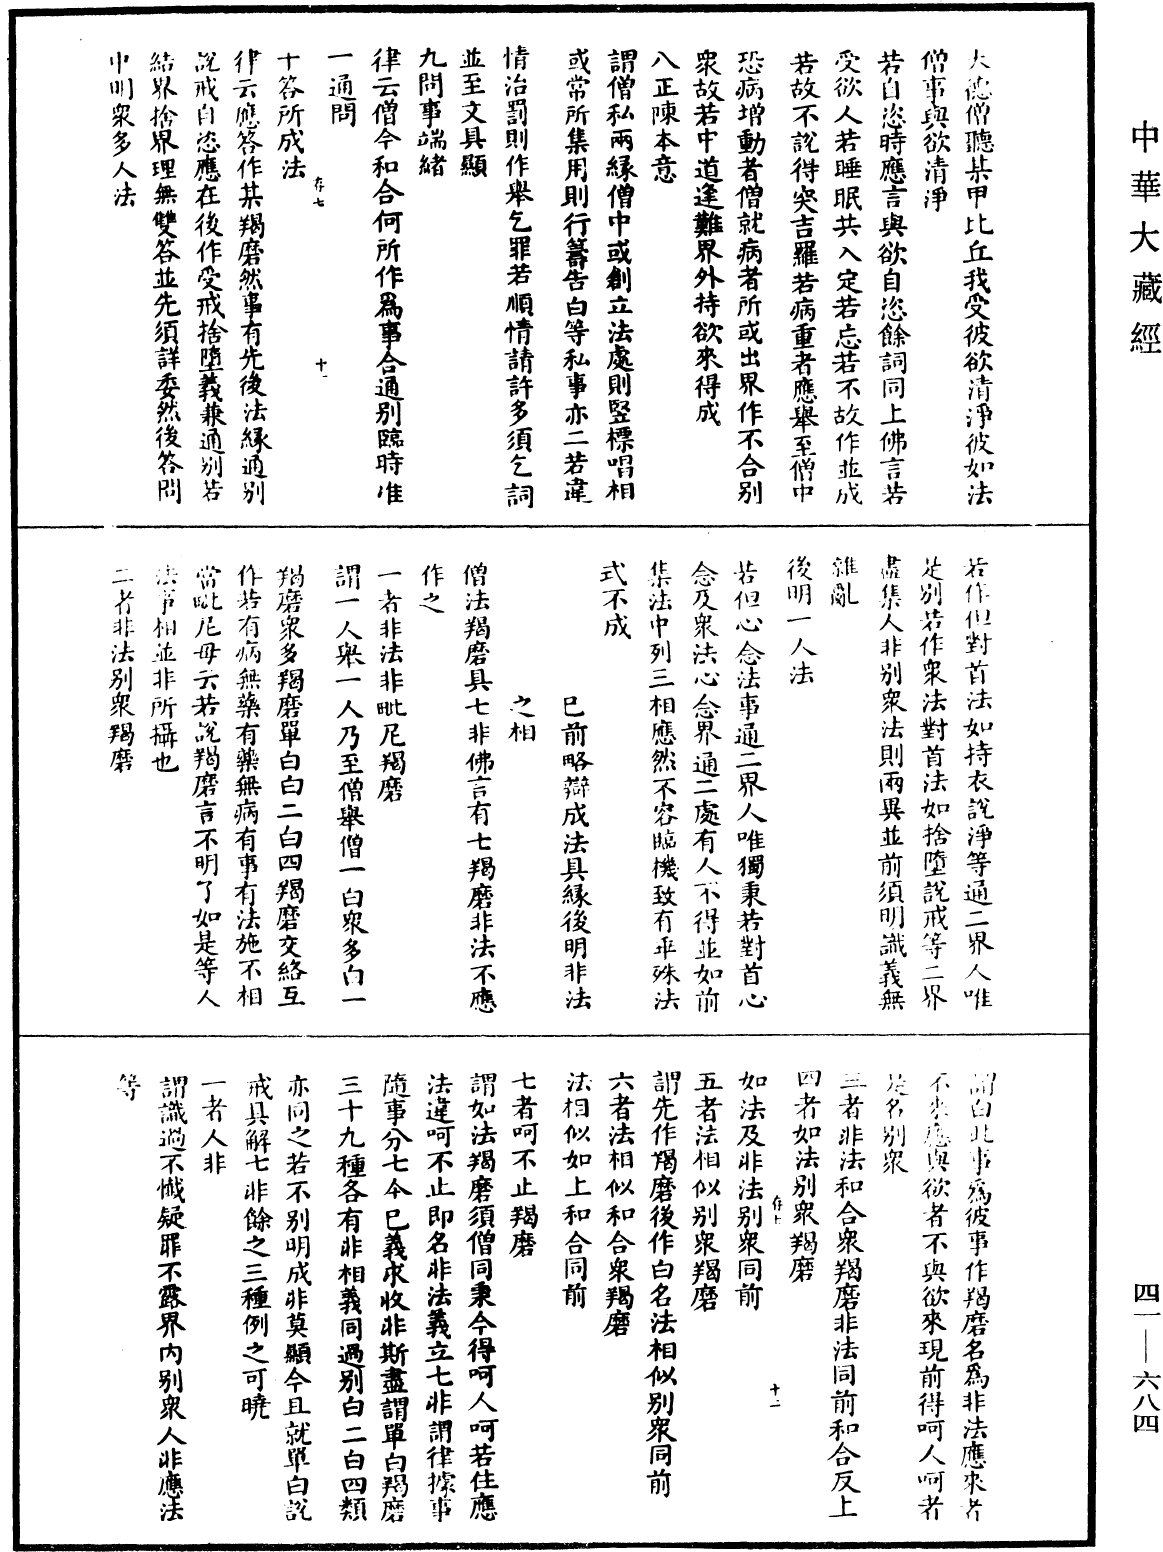 中華大藏經
大德僧聽某甲比丘我受彼欲清淨彼如法
僧事與欲清淨
若自恣時應言與欲自恣餘詞同上佛言若
受欲人若睡眠共入定若忘若不故作並成
若故不說得突吉羅若病重者應舉至僧中
恐病增動者僧就病者所或出界作不合別
衆故若中道逢難界外持欲來得成
八正陳本意
謂僧私兩緣僧中或創立法處則竪標唱相
或常所集用則行籌告白等私事亦二若違
情治罰則作舉乞罪若順情請許多須乞詞
並至文具顯
九問事端緒
律云僧今和合何所作爲事合通別臨時准
一通問
十答所成法
律云應答作某羯磨然事有先後法緣通別
說戒自恣應在後作受戒捨墮義兼通別若
結界捨界理無雙答並先須詳委然後答問
中明衆多人法
若作但對首法如持衣說淨等通二界人唯
是別若作衆法對首法如捨墮說戒等二界
盡集人非別衆法則兩異並前須明識義無
雜亂
後明一人法
若但心念法事通二界人唯獨秉若對首心
念及衆法心念界通二處有人不得並如前
集法中列三相應然不容臨機致有乖殊法
式不成
已前略辯成法具緣後明非法
之相
僧法羯磨具七非佛言有七羯磨非法不應
作之
一者非法非毗尼羯磨
謂一人舉一人乃至僧舉僧一白衆多白一
羯磨衆多羯磨單白白二白四羯磨交絡互
作若有病無藥有藥無病有事有法施不相
當毗尼母云若說羯磨言不明了如是等人
法事相並非所攝也
二者非法別衆羯磨
謂白此事爲彼事作羯磨名爲非法應來者
不來應與欲者不與欲來現前得呵人呵者
是名別衆
三者非法和合衆羯磨非法同前和合反上
四者如法別衆羯磨
如法及非法別衆同前
五者法相似別衆羯磨
謂先作羯磨後作白名法相似別衆同前
六者法相似和合衆羯磨
法相似如上和合同前
七者呵不止羯磨
謂如法羯磨須僧同秉今得呵人呵若住應
法違呵不止即名非法義立七非謂律據事
隨事分七今已義求收非斯盡謂單白羯磨
三十九種各有非相義同過別白二白四類
亦同之若不別明成非莫顯今且就單白說
戒具解七非餘之三種例之可曉
一者人非
謂識過不懺疑罪不露界內別衆人非應法
等
四一—六八四